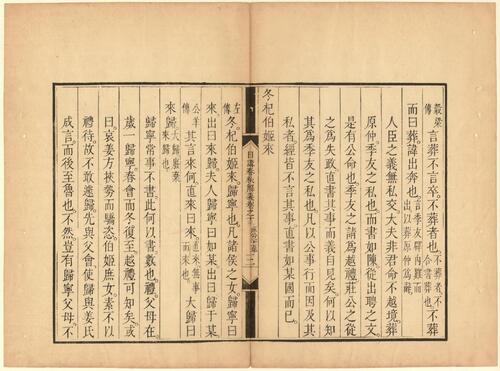 穀梁傳言葬不言卒不葬者也。不葬者不合書葬也。不葬
而曰葬諱出奔也。言季友辟內難而出以葬原仲爲辭。
人臣之義無私交大夫非君命不越境葬
原仲季友之私也而書如陳從出聘之文
是有公命也季友之請爲越禮莊公之從
之爲失政直書其事而義自見矣何以知
其爲季友之私也凡以公事行而因及其
私者經皆不言其事直書如某國而已。
冬杞伯姬來
日講春秋解義卷之十
左傳冬杞伯姬來歸寧也凡諸侯之女歸寧曰
來出曰來歸夫人歸寧曰如某出曰歸于某
公羊傳其言來何直來曰來直來無事而來也。大歸曰
來歸大歸廢棄來歸也
歸寧常事不書此何以書數也禮父母在
歲一歸寧春會而冬復至越禮可知矣或
曰哀姜方挾勢而驕恣伯姬庶女素不以
禮待故不敢遽歸先與父會使歸與姜氏
咸言而後至魯也不然豈有歸寧父母不